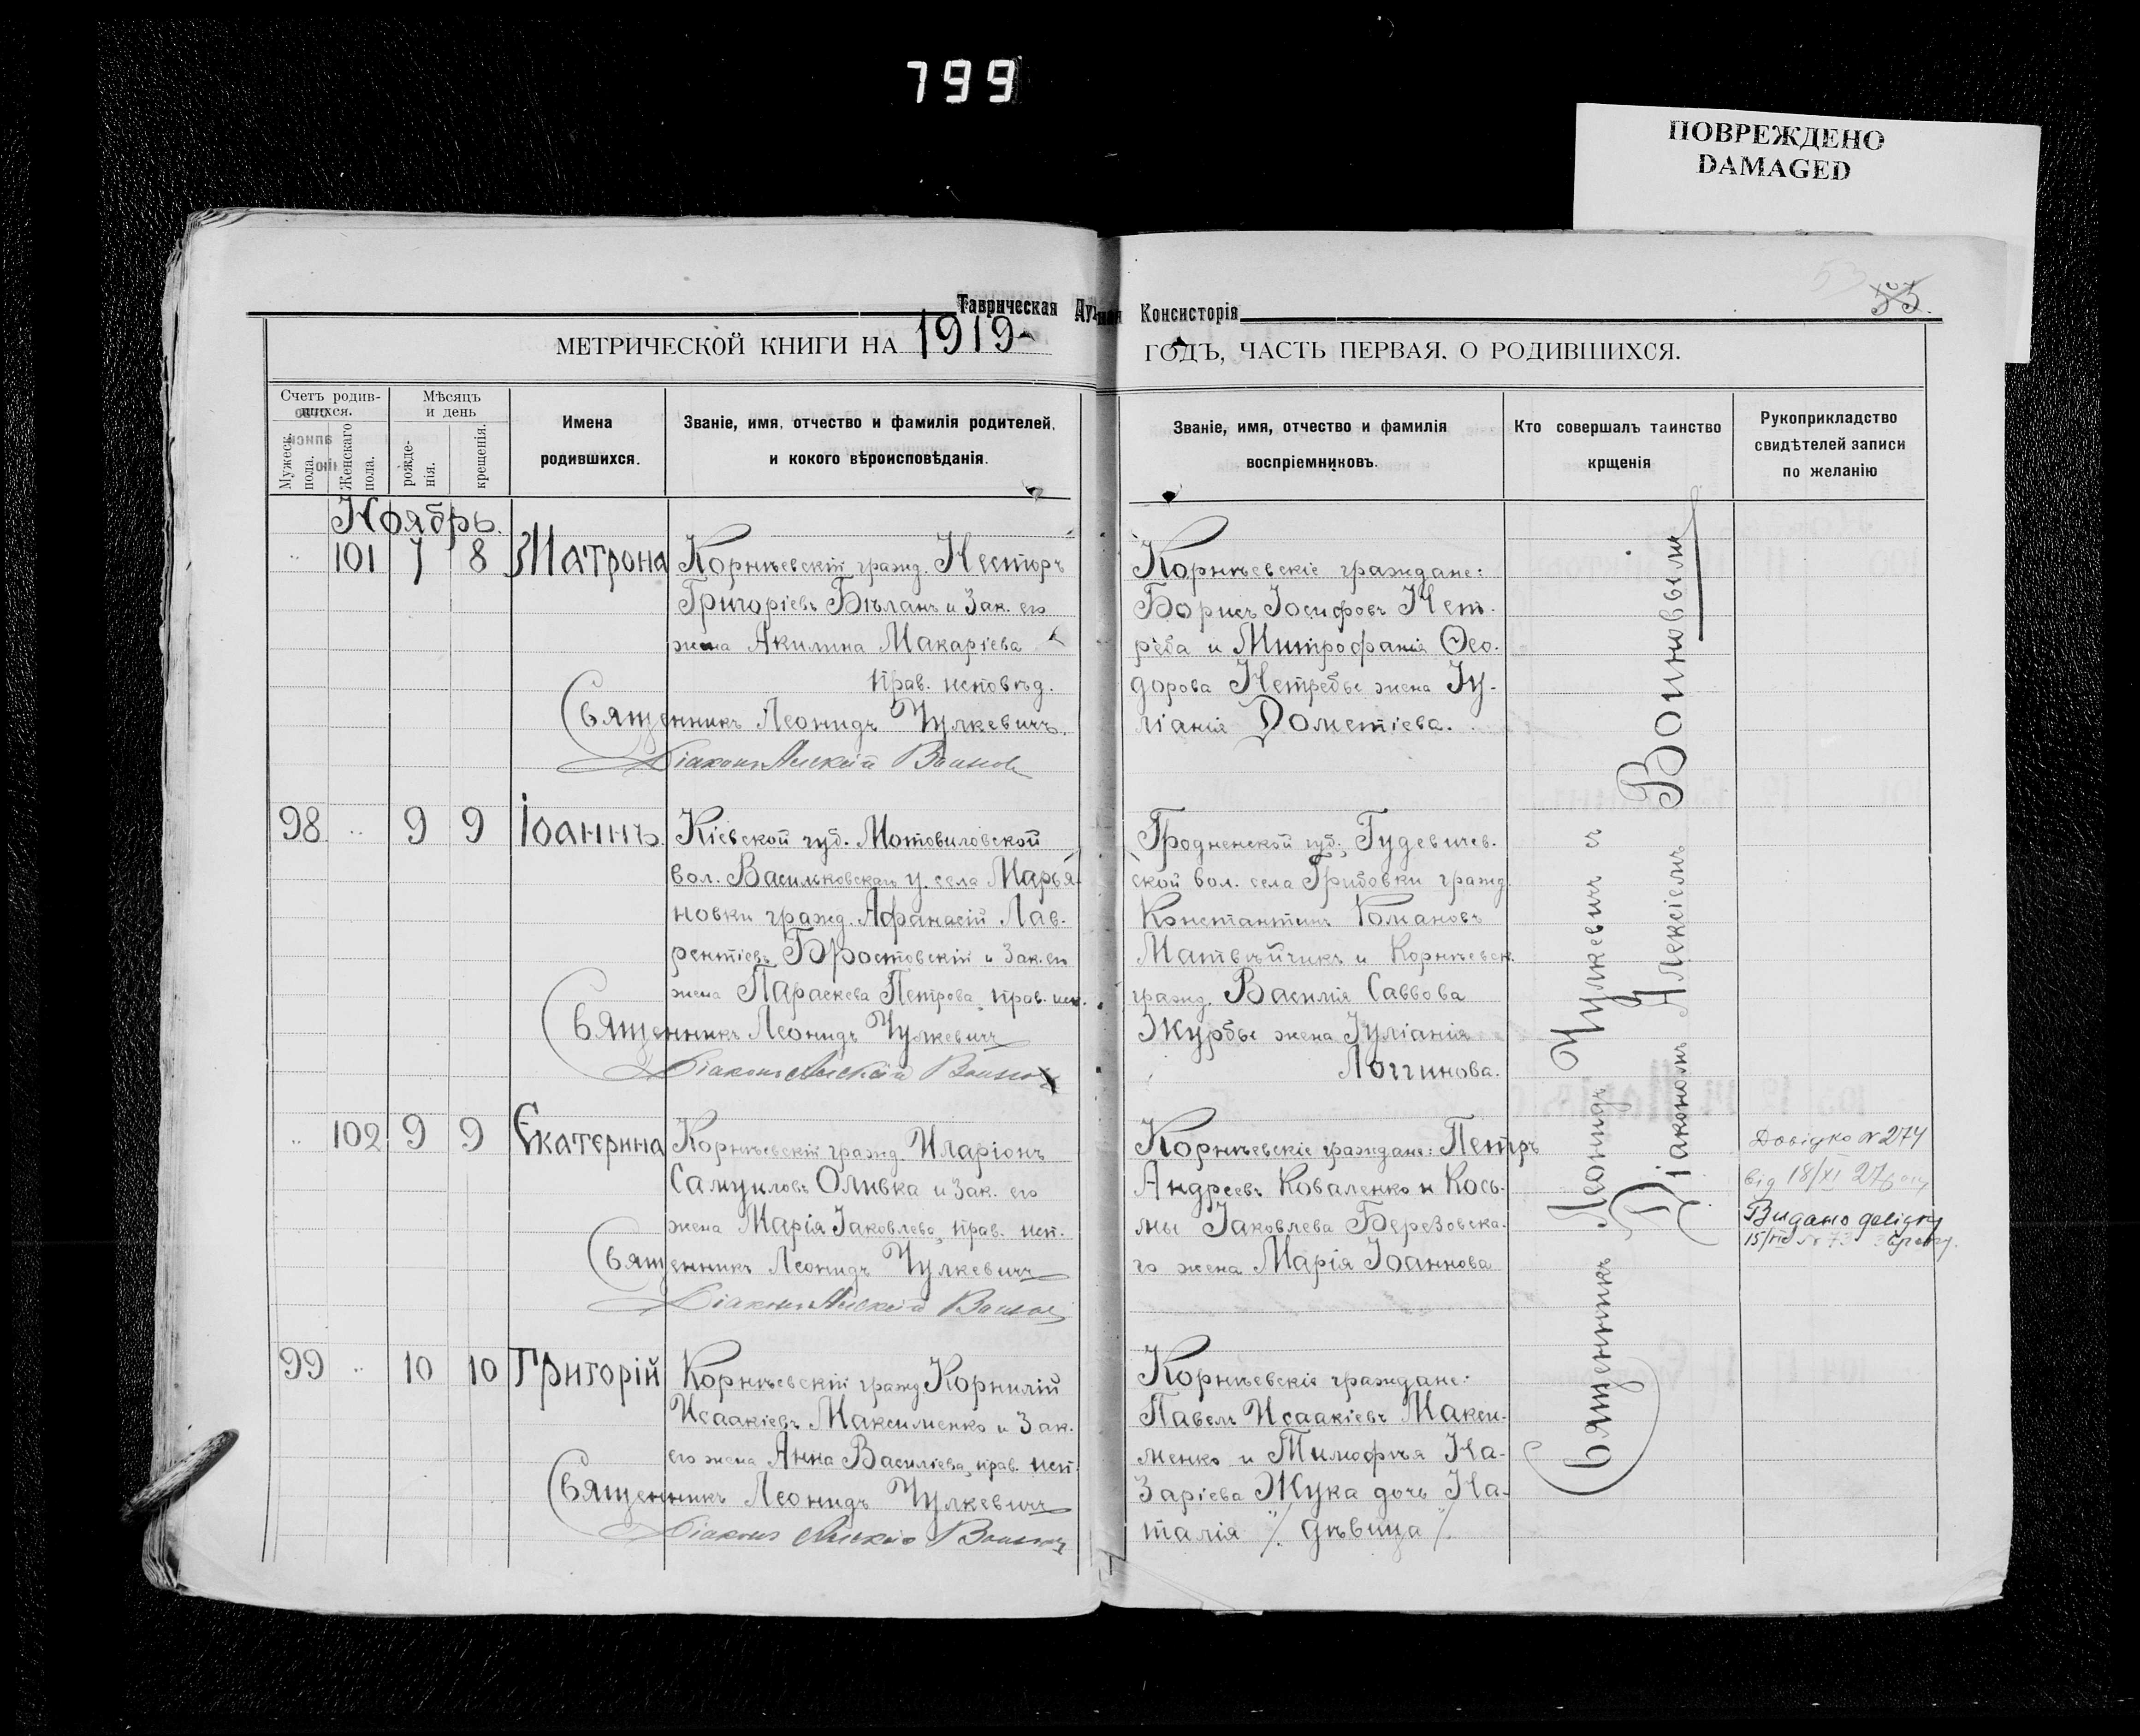 799
ПОВРЕЖДЕНО
DAMAGED
53
Таврическая Духовная Консисторія
МЕТРИЧЕСКОЙ КНИГИ НА 1919 ГОДЪ, ЧАСТЬ ПЕРВАЯ, О РОДИВШИХСЯ.
Счетъ родив-
шихся.
Мужеск. пола.
Женскаго пола.
Мѣсяцъ
и день
рожде-
нія.
крещенія.
Имена
родившихся.
Званіе, имя, отчество и фамилія родителей,
и кокого вѣроисповѣданія.
Званіе, имя, отчество и фамилія
воспріемниковъ.
Кто совершалъ таинство
крщенія
Рукоприкладство
свидѣтелей записи
по желанію
Ноябрь.
101 7 8 Матрона
Корнѣевскій гражд. Несторъ
Григоріевъ Бѣланъ и зак. его
жена Акилина Макаріева
прав. исповѣд.
Священникъ Леонидъ Чулкевичъ.
Діаконъ Алексій Воинов
Корнѣевскіе граждане:
Борисъ Іосифовъ Нет-
реба и Митрофанія Ѳео-
дорова Нетребы жена Іу-
ліанія Дометіева.
98 9 9 Іоаннъ
Кіевской губ. Мотовиловской
вол. Васильковскаго у. села Марья-
новки гражд. Афанасій Лав-
рентіевъ Бростовскій и зак. его
жена Параскева Петрова, прав. исп.
Священникъ Леонидъ Чулкевичъ
Діаконъ Алексій Воинов
Гродненской губ. Гудевичев-
ской вол. села Грибовки гражд.
Константинъ Романовъ
Матвѣйчикъ и Корнѣевск.
гражд. Василія Саввова
Журбы жена Іуліанія
Логгинова.
102 9 9 Екатерина
Корнѣевскій гражд. Иларіонъ
Самуиловъ Оливка и зак. его
жена Марія Іаковлева, прав. исп.
Священникъ Леонидъ Чулкевичъ
Діаконъ Алексій Воинов
Корнѣевскіе граждане: Петръ
Андреевъ Коваленко и Кось-
мы Іаковлева Березовска-
го жена Марія Іоаннова
Довідка № 274
від 18/XI 27 року
Видано довідку
99 10 10 Григорій
Корнѣевскій гражд. Корнилій
Исаакіевъ Максименко и зак.
его жена Анна Василіева, прав. исп.
Священникъ Леонидъ Чулкевичъ
Діаконъ Алексій Воинов
Корнѣевскіе граждане:
Павелъ Исаакіевъ Макси-
менко и Тимофѣя На-
заріева Жука дочь На-
талія /. дѣвица /.
Священникъ Леонидъ Чулкевичъ съ
Діакономъ Алексіемъ Воиновымъ